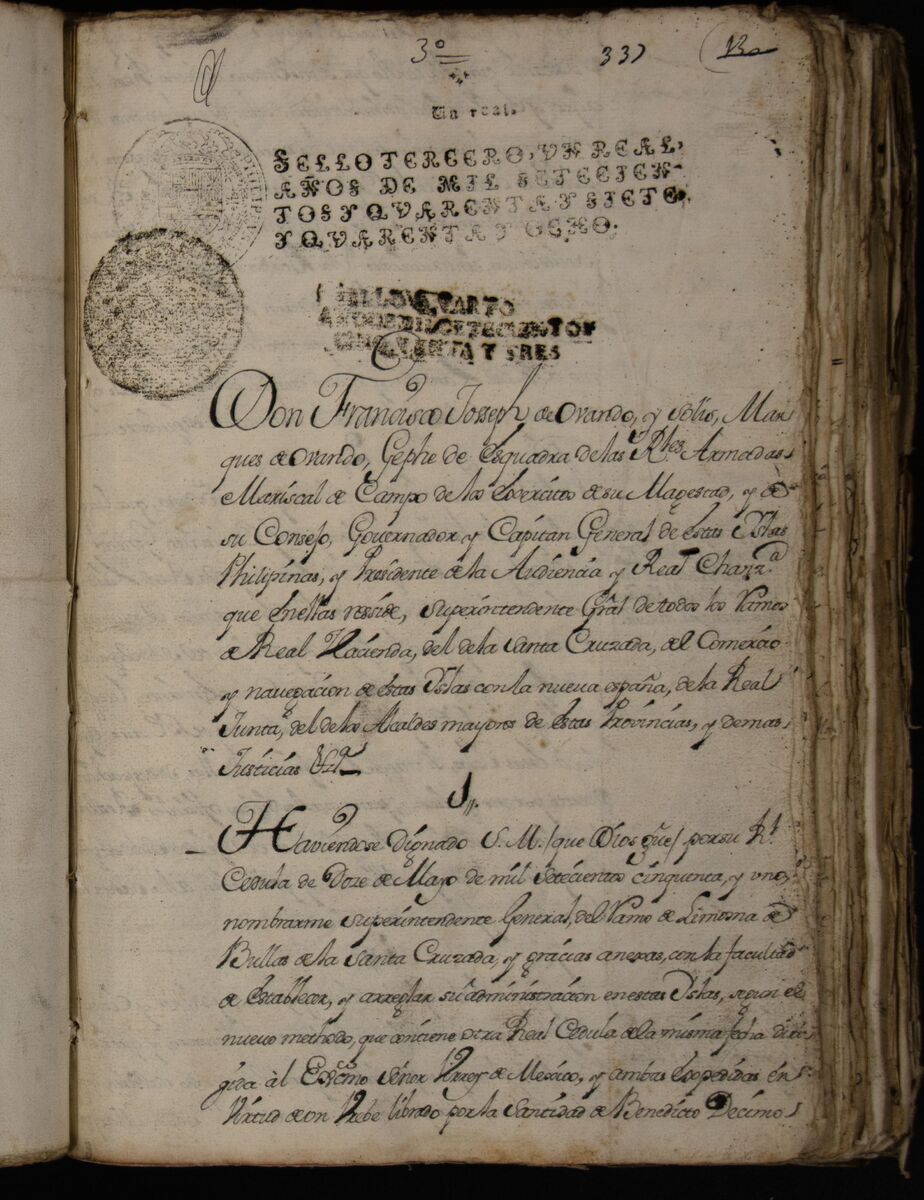 3º 337 13
Un real.
SELLO TERCERO, VN REAL,
AÑOS DE MIL SETECIEN-
TOS Y QVARENTA Y SIETE,
Y QVARENTA Y OCHO.
SELLO QVARTO
AÑO DE MIL SETECIENTOS
CINQVENTA Y TRES
Don Francisco Joseph de Ovando, y Solis, Mar
ques de Ovando, Gephe de Esquadra de las Rles Armadas
Mariscal de Campo de los Exercitos de su Magestad, y de
su Consejo, Governador y Capitan General de estas Yslas
Philipinas, y Presidente de la Audiencia y Real Chanz.ª
que en ellas reside, Superintendente Gral de todos los Ramos
de Real Hacienda, del de la Santa Cruzada, del Comercio
y navegacion de estas Yslas con la nueva españa, de la Real
Junta, del de los Alcaldes mayores de estas Provincias, y demas
Justicias &ª
Haviendose Dignado S. M. /que Dios gue/ por su Rl
Cedula de Doze de Mayo de mil setecientos cinquenta, y uno,
nombrarme Superintendente General, del Ramo de Limosna de
Bullas de la Santa Cruzada, y gracias anexas, con la facultad
de establecer, y arreglar su administracion en estas Yslas, segun el
nuevo methodo, que contiene otra Real Cedula de la misma fecha diri
gida àl Excmo Señor Virrey de Mexico, y ambas expedidas en
Virtud de un Brebe librado por la Santidad de Benedicto Decimo